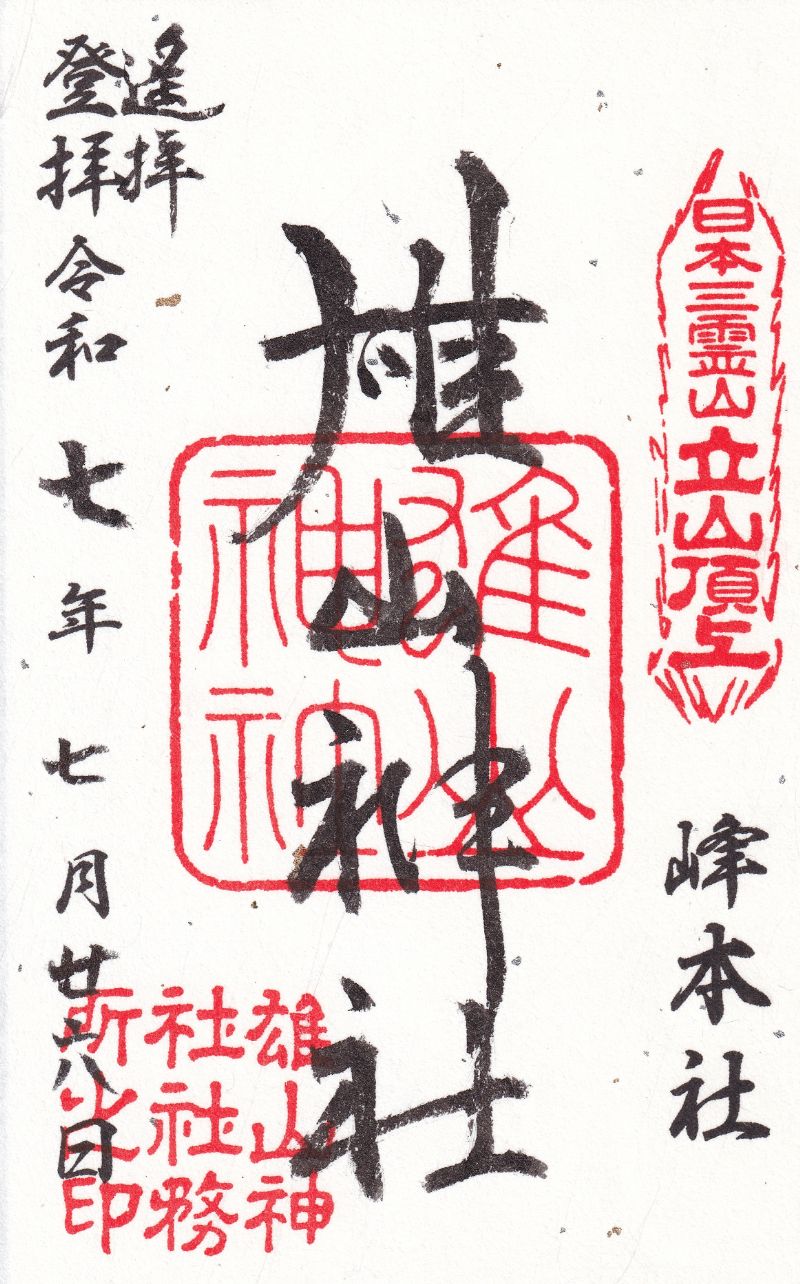 日本三霊山立山頂上
峰本社
雄山神社
雄山
神社
雄山神
社社務
所之印
遥拝
登拝 令和七年七月廿六日